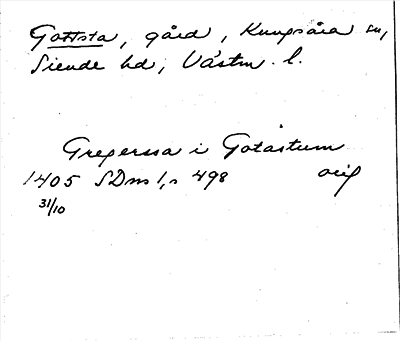 Gottsta, gård, Kungsåra sn,
Siende hd, Västm. l.
Gregerssa i Gotastum
1405 SDns 1, n 498 orig
31/10